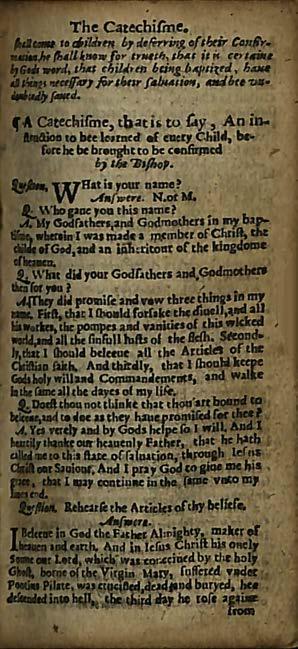 The Catechisme.
shall come to children by deferring of their Confir-
mation, he shall know for trueth, that it is certaine
by Gods word, that children being baptized, haue
all things necessary for their saluation, and bee vn-
doubtedly saued.
¶A Catechisme, that is to say, An in-
struction to bee learned of euery Child, be-
fore he be brought to be confirmed
by the Bishop.
Question. WHat is your name?
Answere. N. or M.
Q. Who gaue you this name?
A. My Godfathers, and Godmothers in my bap-
tisme, wherein I was made a member of Christ, the
childe of God, and an inheritour of the kingdome
of heauen.
Q. What did your Godfathers and Godmothers
then for you?
A. They did promise and vow three things in my
name. First, that I should forsake the diuell, and all
his workes, the pompes and vanities of this wicked
world, and all the sinfull lusts of the flesh. Second-
ly, that I should beleeue all the Articles of the
Christian faith. And thirdly, that I should keepe
Gods holy will and Commandements, and walke
in the same all the dayes of my life.
Q. Doest thou not thinke that thou art bound to
beleeue, and to doe as they haue promised for thee?
A. Yes verely and by Gods helpe so I will. And I
heartily thanke our heauenly Father, that he hath
called me to this state of saluation, through Iesus
Christ our Sauiour. And I pray God to giue me his
grace, that I may continue in the same vnto my
liues end.
Question. Rehearse the Articles of thy beliefe.
Answere.
I Beleeue in God the Father Almighty, maker of
heauen and earth. And in Iesus Christ his onely
Sonne our Lord, which was conceiued by the holy
Ghost, borne of the Virgin Mary, suffered vnder
Pontius Pilate, was crucified, dead and buryed, hee
descended into hell, the third day he rose againe
from